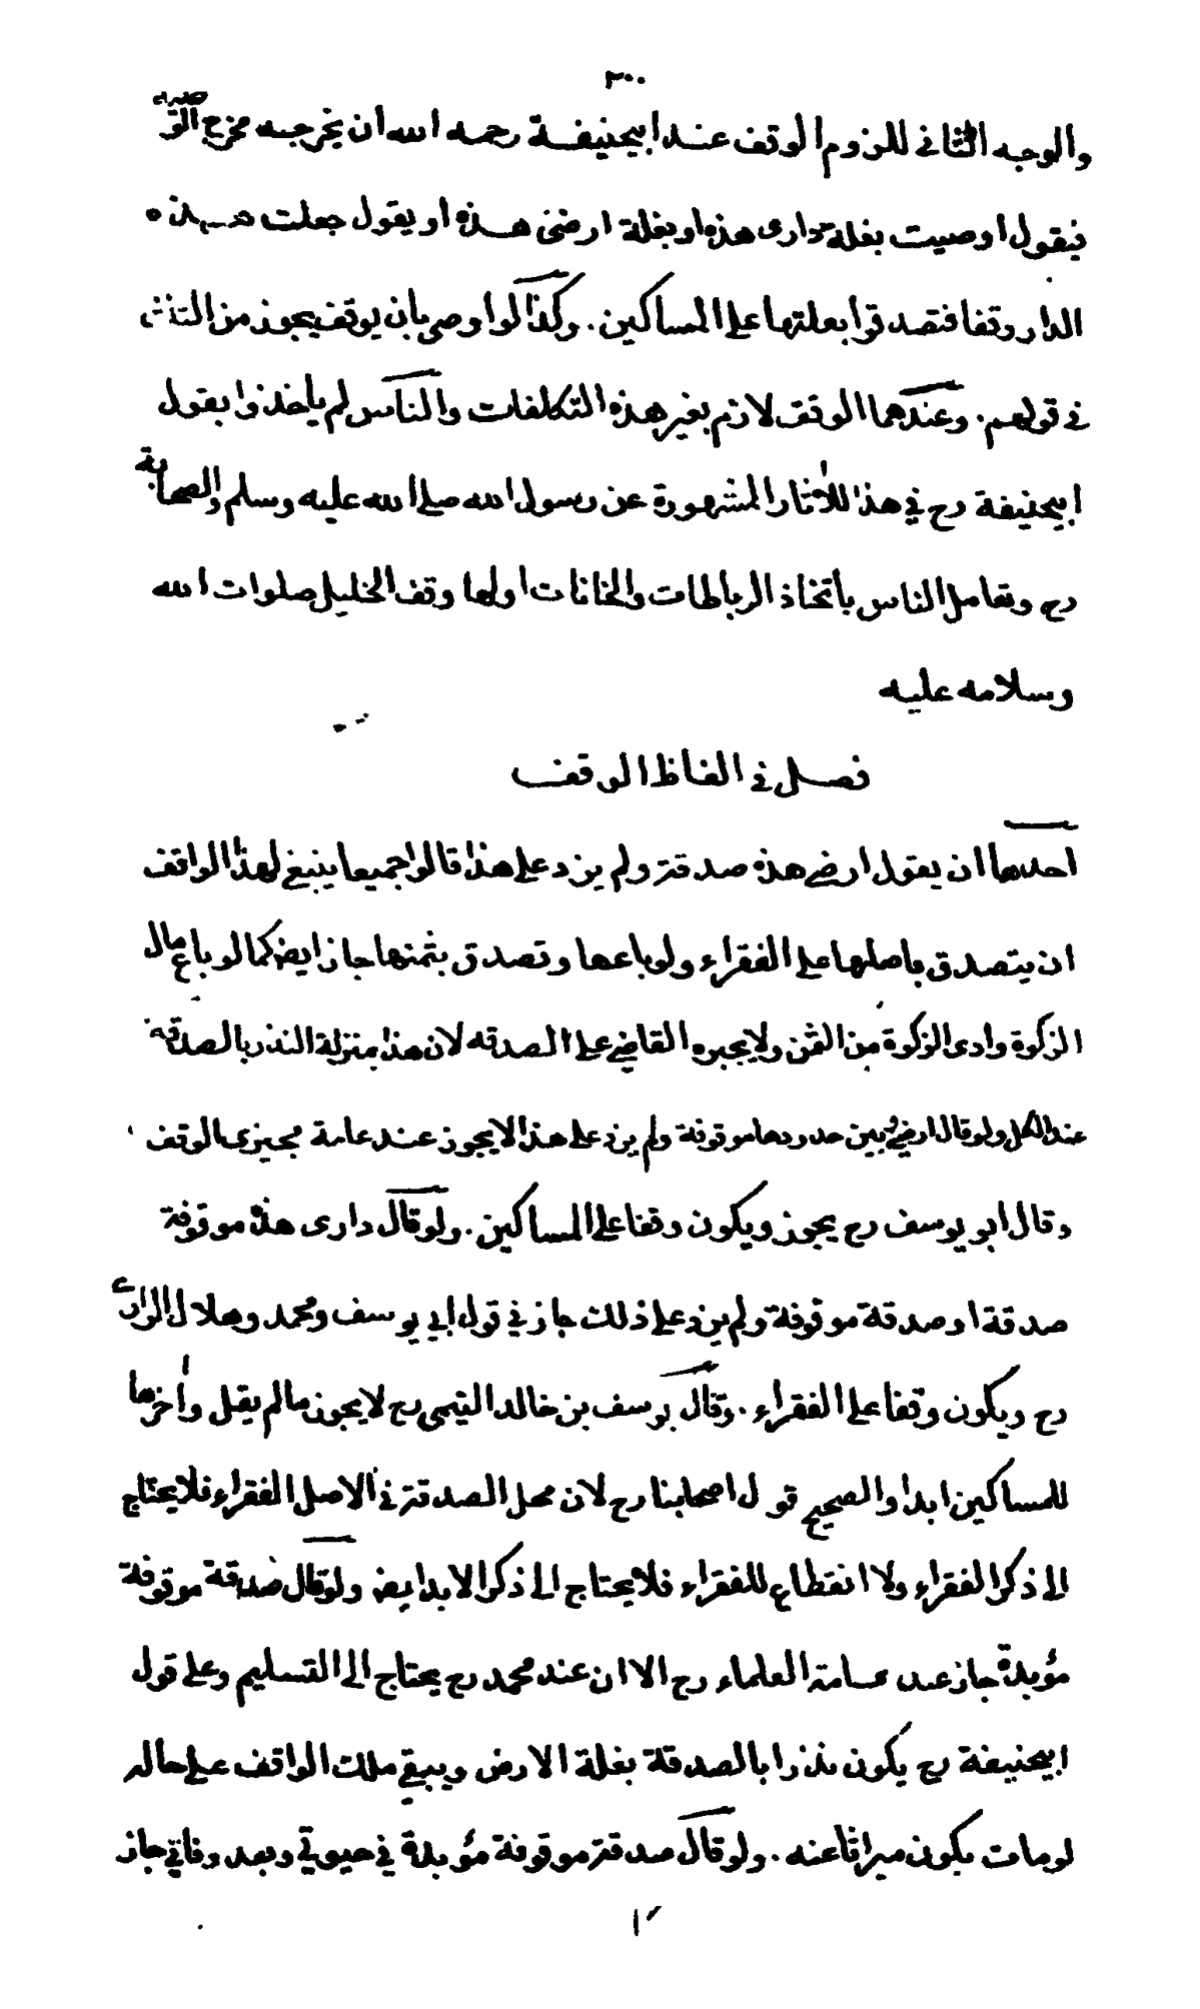 ٣٠٠
والوجه الثاني للزوم الوقف عند ابيحنيفة رحمه الله ان يخرجه مخرج الوصية
فيقول اوصيت بغلة داري هذه او بغلة ارضي هذه او يقول جعلت هذه
الدار وقفا فتصدقوا بغلتها على المساكين . وكذا لو اوصي بان يوقف يجوز من الثلث
في قولهم . وعندهما الوقف لازم بغير هذه التكلفات والناس لم يأخذوا بقول
ابيحنيفة رح في هذا للآثار المشهورة عن رسول الله صلى الله عليه وسلم والصحابة
رح وتعامل الناس باتخاذ الرباطات والخانات اولها وقف الخليل صلوات الله
وسلامه عليه
فصل في الفاظ الوقف
احدها ان يقول ارضي هذه صدقة ولم يزد على هذا قالوا جميعا ينبغي لهذا الواقف
ان يتصدق باصلها على الفقراء ولو باعها وتصدق بثمنها جاز ايضا كما لو باع مال
الزكوة وادى الزكوة من الثمن ولا يجبره القاضي على الصدقه لان هذا بمنزلة النذر بالصدقة
عند الكل ولو قال ارضي وبين حدودها موقوفة ولم يزد على هذا لا يجوز عند عامة مجيزي الوقف
وقال ابو يوسف رح يجوز ويكون وقفا على المساكين . ولو قال داري هذه موقوفة
صدقة او صدقة موقوفة ولم يزد على ذلك جاز في قول ابي يوسف ومحمد وهلال الرأي
رح ويكون وقفا على الفقراء . وقال يوسف بن خالد التيمي رح لا يجوز ما لم يقل وآخرها
للمساكين ابدا والصحيح قول اصحابنا رح لان محل الصدقة في الاصل الفقراء فلا يحتاج
الى ذكر الفقراء ولا انقطاع للفقراء فلا يحتاج الى ذكر الابد ايضا ولو قال صدقة موقوفة
مؤبدة جاز عند عامة العلماء رح الا ان عند محمد رح يحتاج الى التسليم وعلى قول
ابيحنيفة رح يكون نذرا بالصدقة بغلة الارض ويبقى ملك الواقف على حاله
لو مات يكون ميراثا عنه . ولو قال صدقة موقوفة مؤبدة في حيوتي وبعد وفاتي جاز